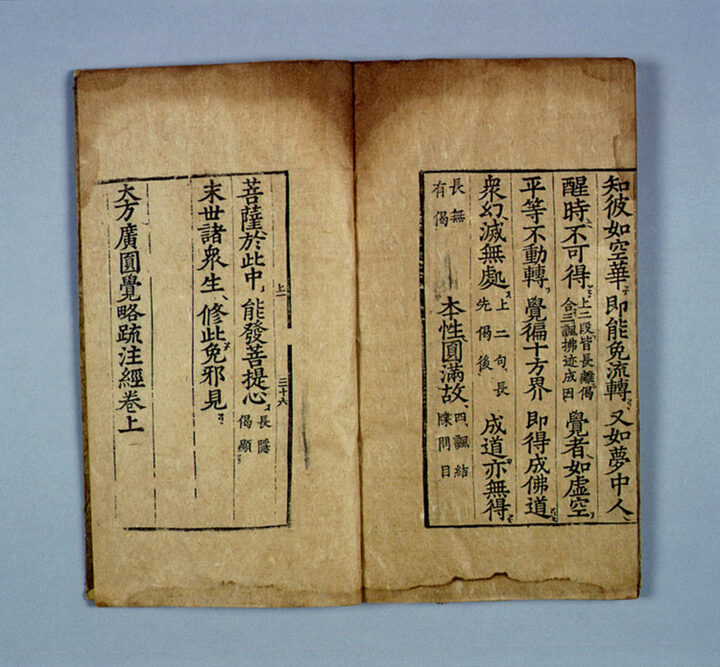 知彼如空華 即能免流轉 又如夢中人
醒時不可得 上二段皆長離偈 合三諷拂迹成因 覺者如虛空
平等不動轉 覺徧十方界 即得成佛道
衆幻滅無處 上二句長 先偈後 成道亦無得
長無 有偈 本性圓滿故 四諷結 牒問目
上
三十六
菩薩於此中 能發菩提心 長隱 偈顯
末世諸衆生 修此免邪見
大方廣圓覺略疏注經卷上